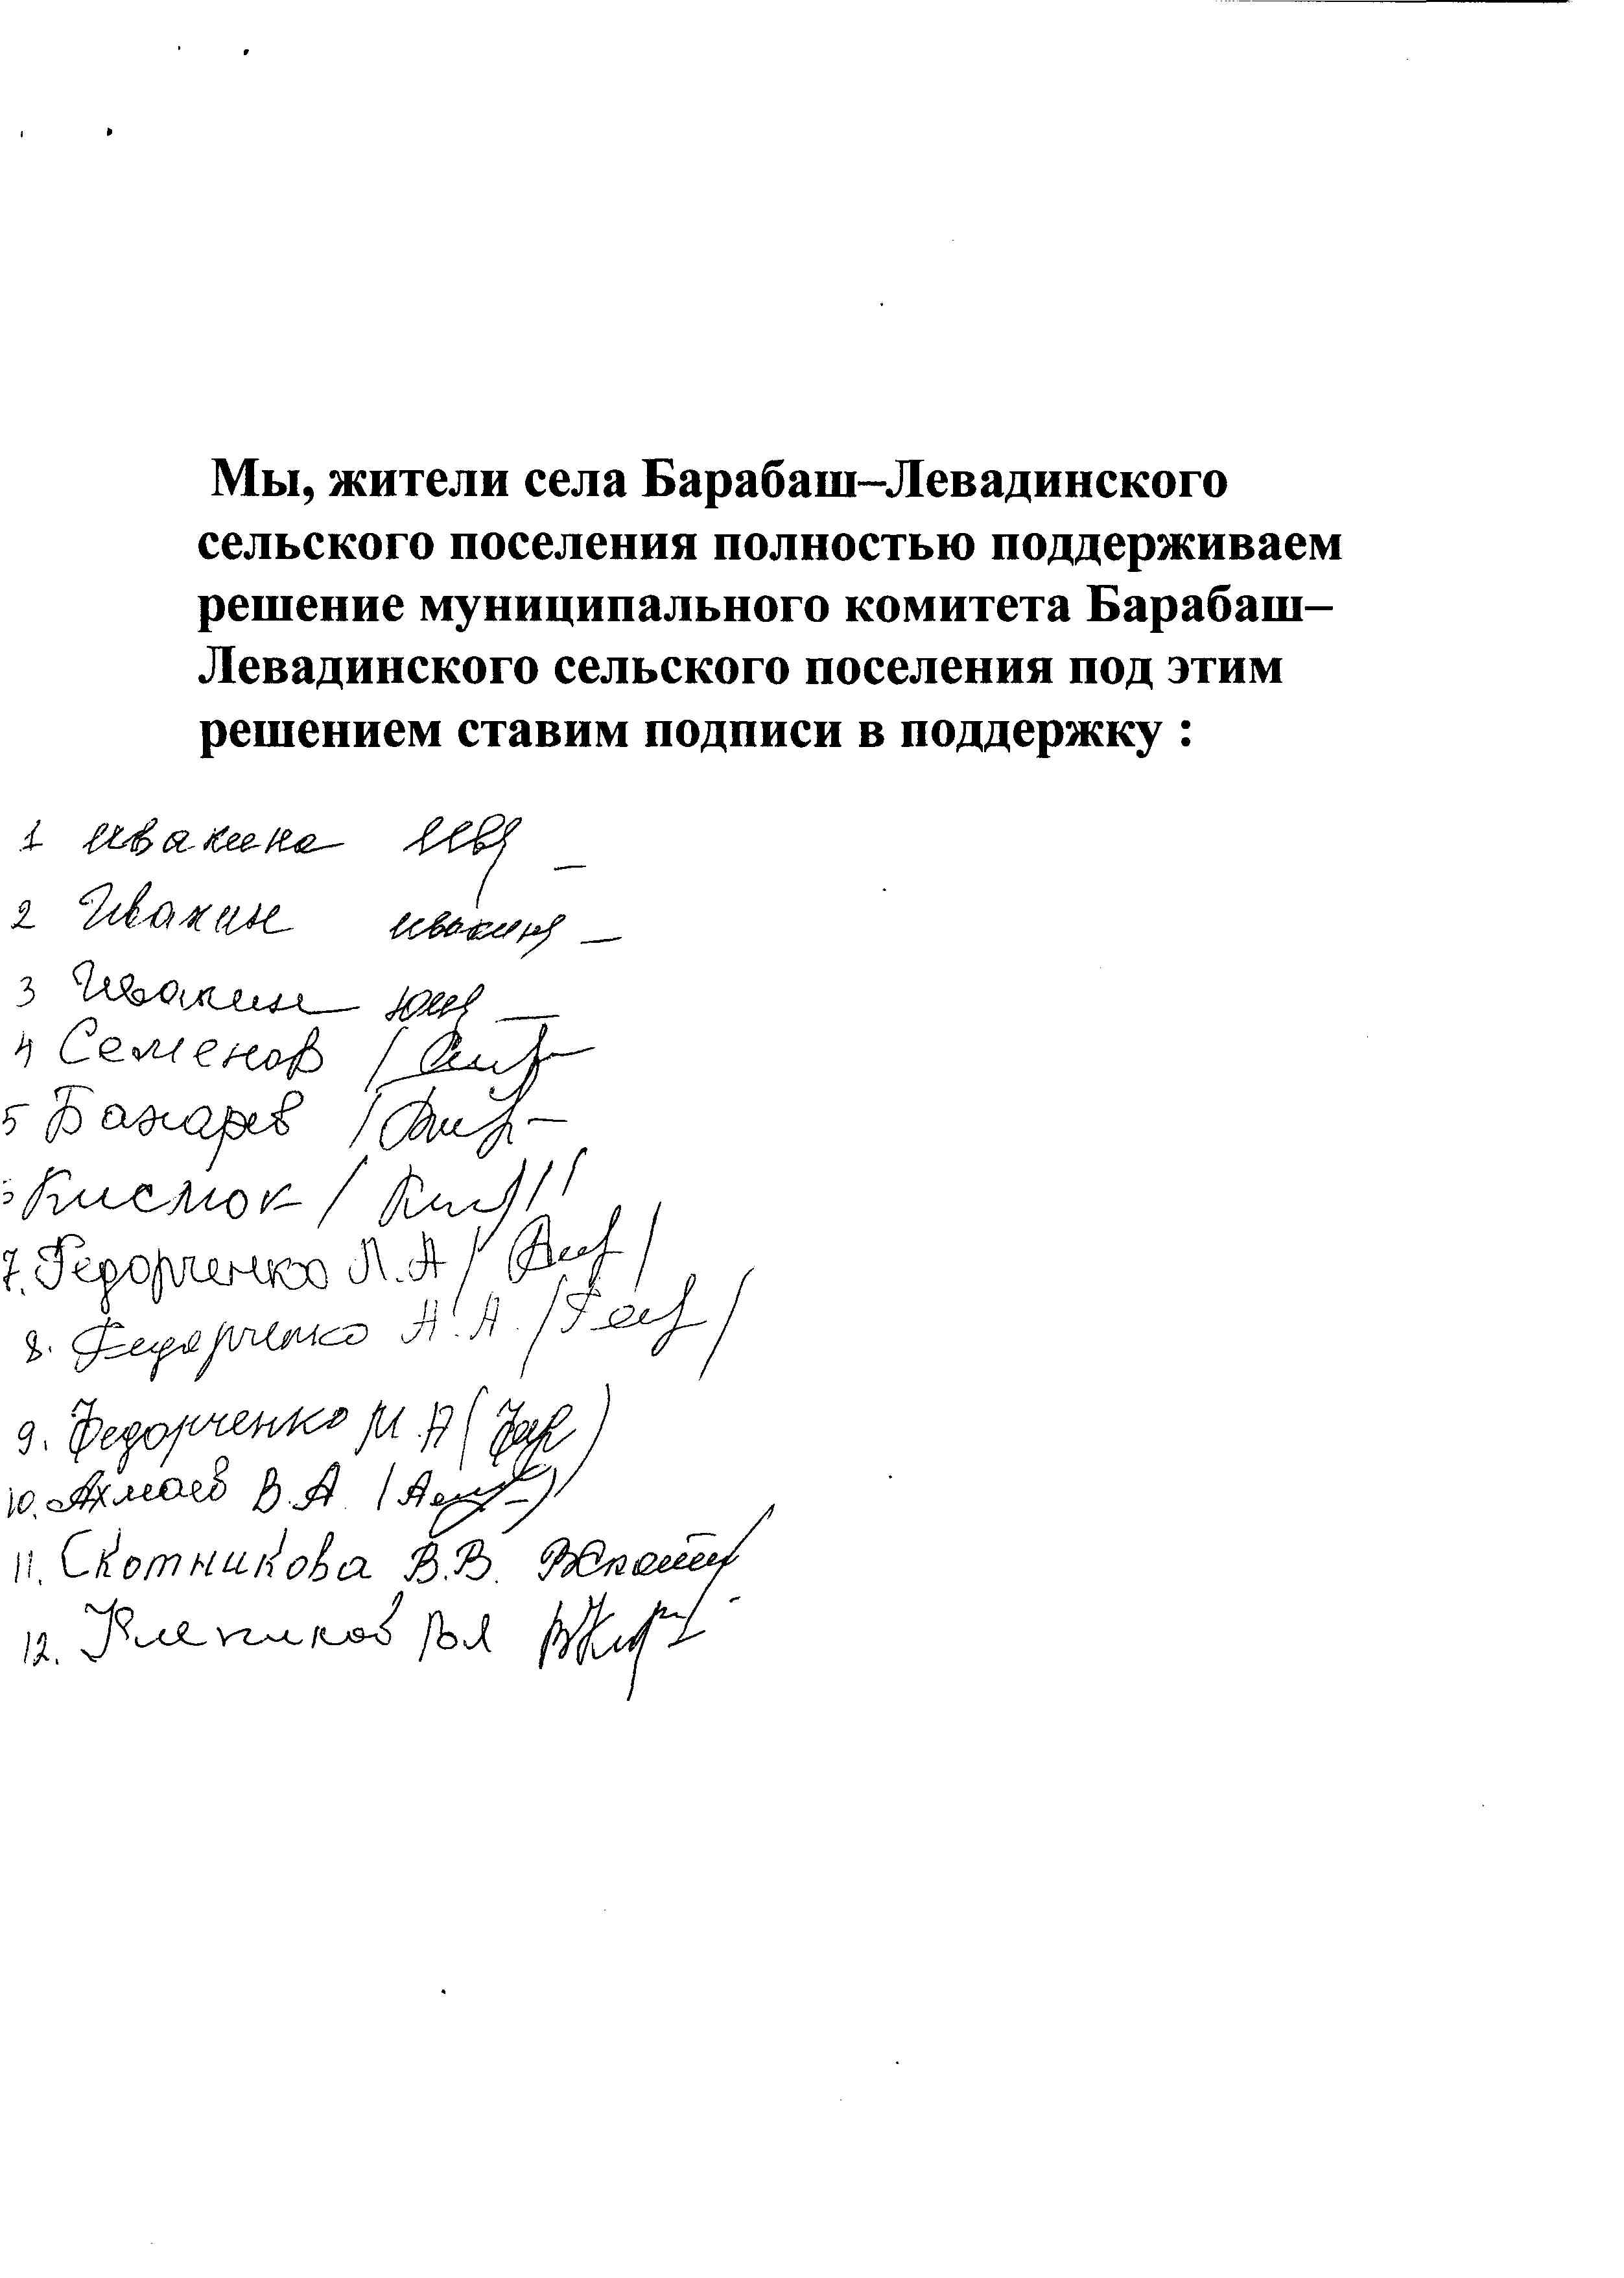 Мы, жители села Барабаш–Левадинского
сельского поселения полностью поддерживаем
решение муниципального комитета Барабаш–
Левадинского сельского поселения под этим
решением ставим подписи в поддержку :
1 Ивакина
2 Ивакин
3 Ивакин
4 Семенов /
5 Бажарев /
Кислюк /
7. Федорченко Л.А /
8. Федорченко А.А. /
9. Федорченко М.А
10. Ахмаев В.А.
11. Скотникова В.В.
12.